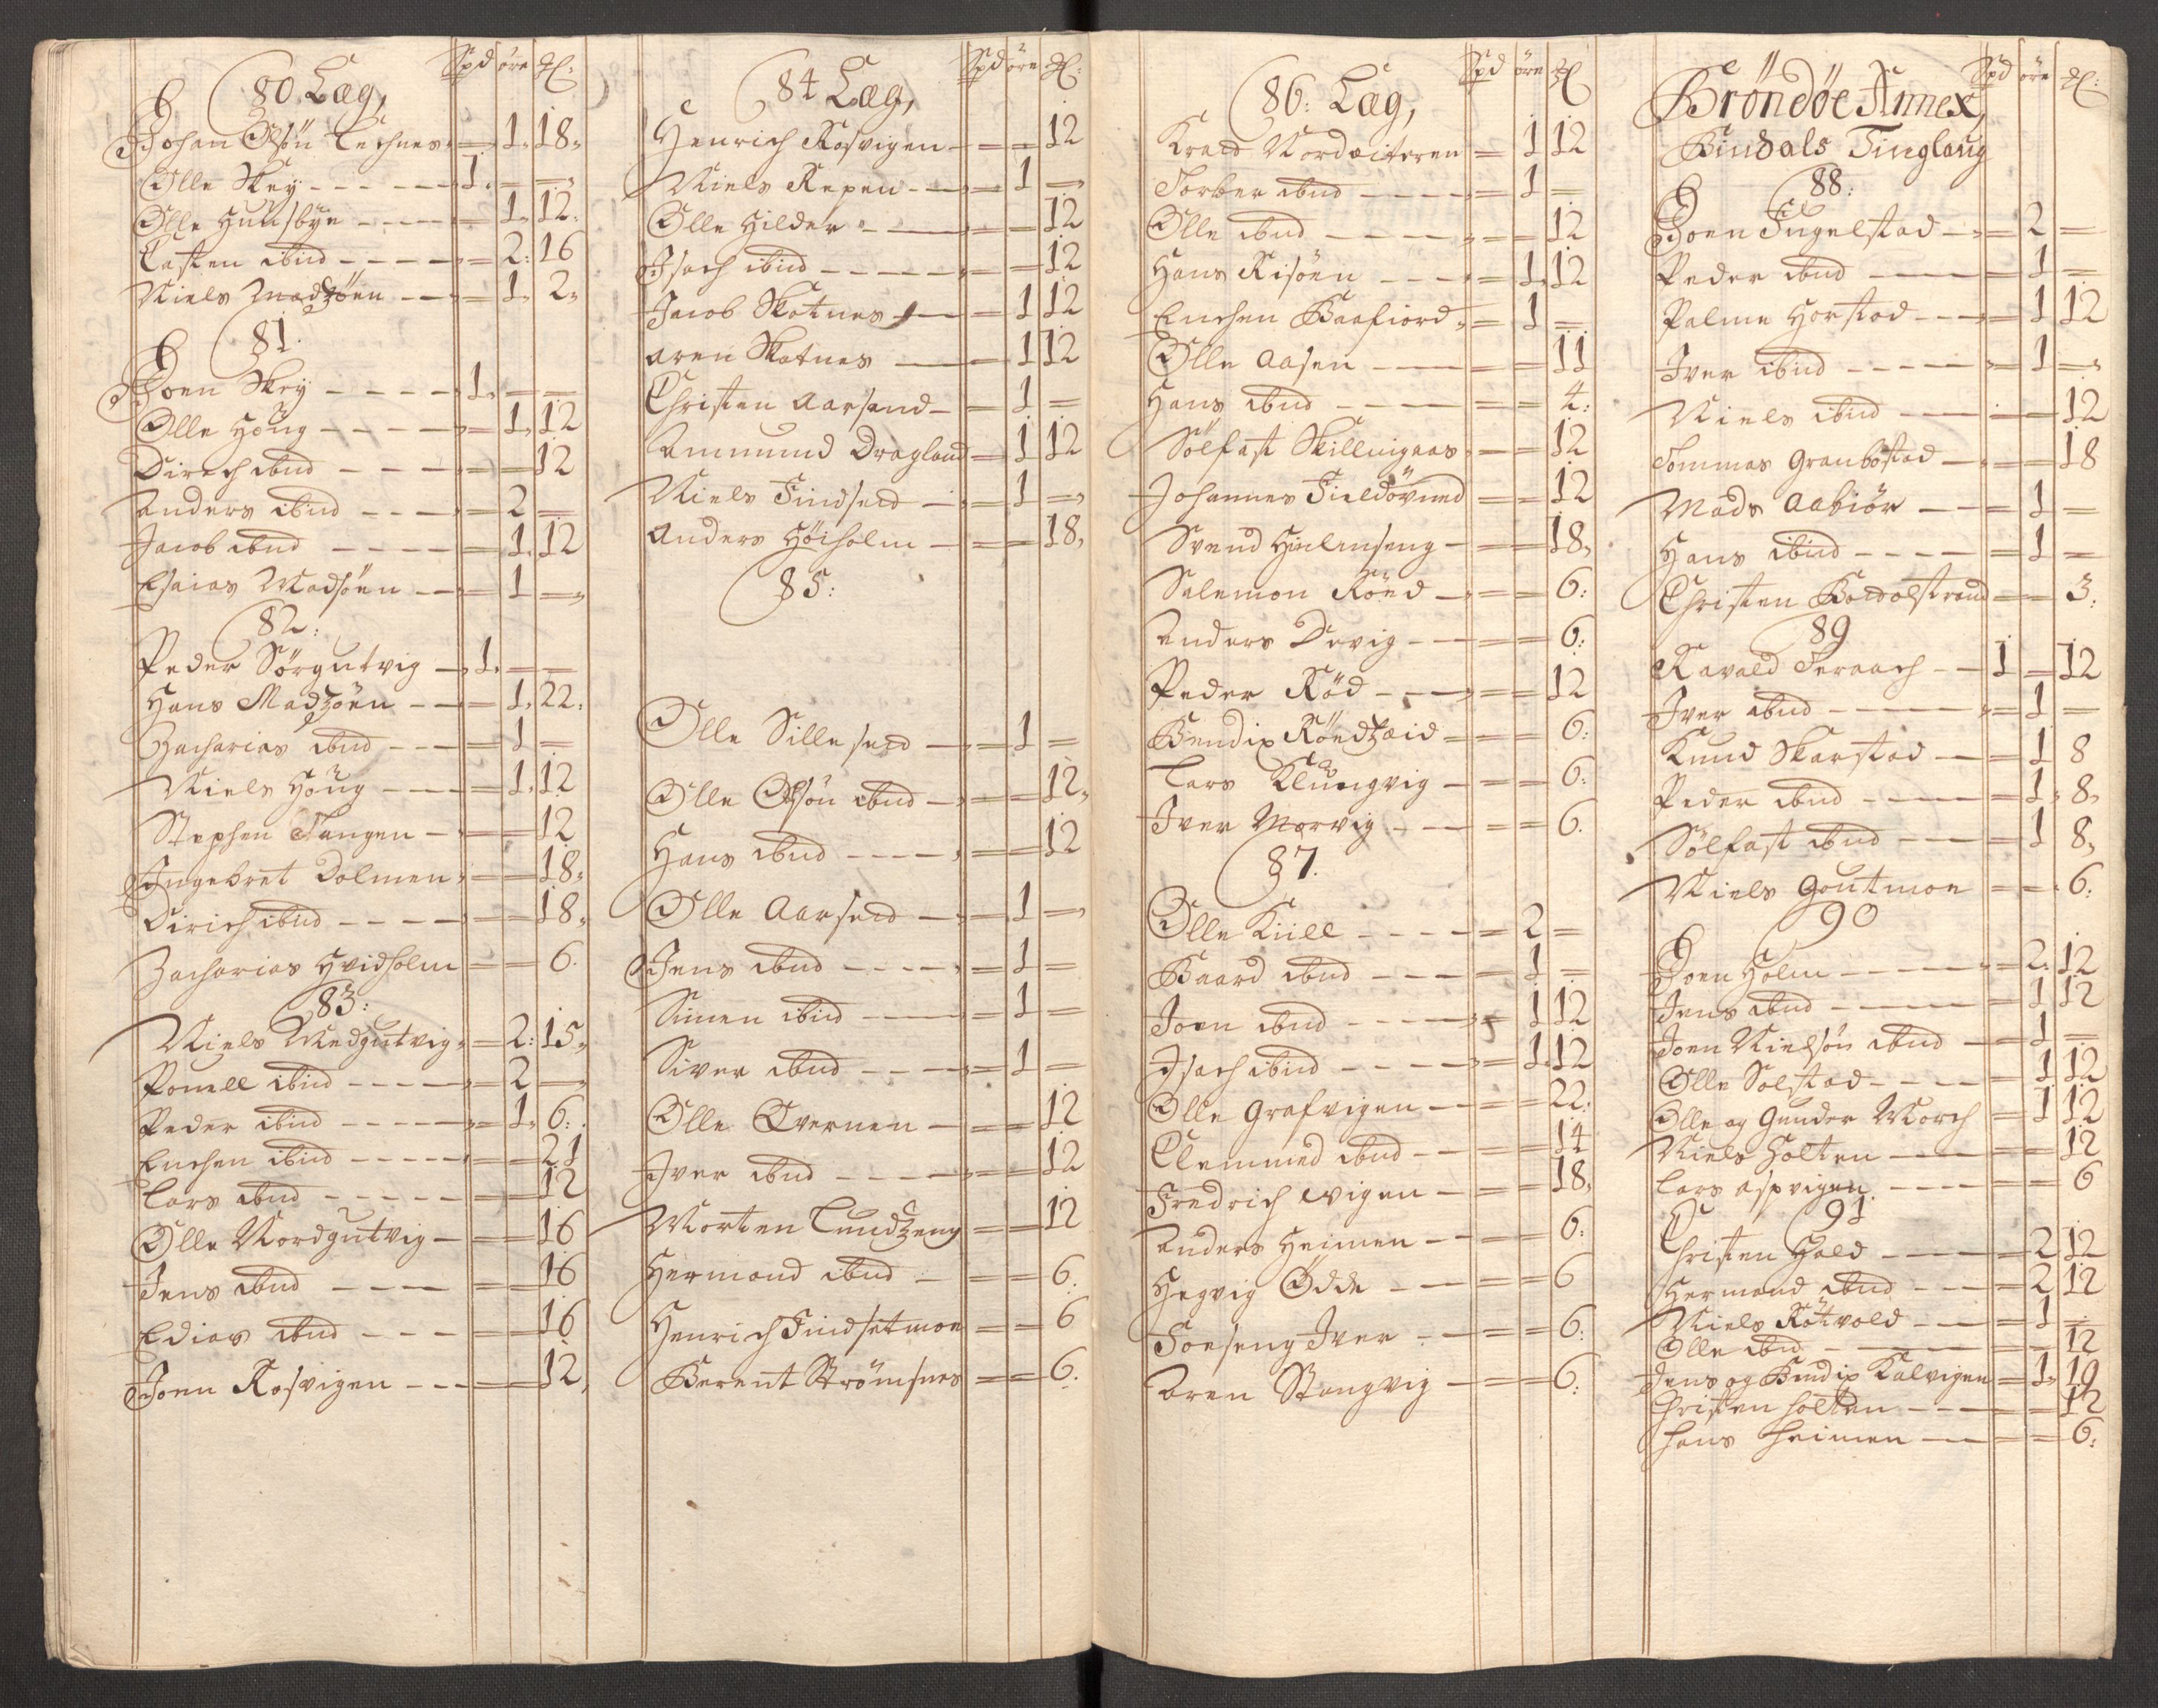 Spd öre ℔:
80. Læg,
Johan Olsön Lechnes = 1. 18.
Olle Skey - - - - 1. = =
Olle Hunsbye - - - = 1. 12.
Casten ibid - - - = 2: 16
Niels Madzöen - - = 1. 2.
81.
Joen Skey - - - - 1. = =
Olle Höug - - - - = 1. 12
Dirich ibid - - - = = 12
Anders ibid - - - = 2 =
Jacob ibid - - - - = 1. 12
Esaias Madsöen - - = 1 =
82:
Peder Sörgutvig - 1. = =
Hans Madzöen - - = 1. 22.
Zacharias ibid - - - = 1 =
Niels Höug - - - = 1. 12
Stephen Tangen - = = 12
Ingebret Dolmen = = 18.
Dirich ibid - - - - = = 18.
Zacharias Hvidholm = = 6.
83:
Niels Medgutvig = 2: 15.
Povell ibid - - - - = 2 =
Peder ibid - - - - = 1. 6.
Enchen ibid - - - - = = 21
Lars ibid - - - - = = 12
Olle Nordgutvig - = = 16
Jens ibid - - - = = 16
Edias ibid - - - = = 16
Joen Rosvigen - - - = = 12,
Spd öre ℔:
84 Læg,
Henrich Rosvigen - = = 12
Niels Repen - - = 1 =
Olle Hilder - - = = 12
Isach ibid - - - - = = 12
Jacob Skotnes - = 1 12
Aren Skotnes - = 1 12
Christen Aarsand - = 1 =
Ammund Dragland = 1 12
Niels Findseid - = 1 =
Anders Höiholm - = = 18,
85:
Olle Silleseid - = 1 =
Olle Olsön ibid - = = 12,
Hans ibid - - - - = = 12
Olle Aarseid - = 1 =
Jens ibid - - - - = 1 =
Simen ibid - - - = 1 =
Siver ibid - - - - = 1 =
Olle Qvernen - = = 12
Iver ibid - - - - = = 12
Morten Lundzeng = = 12
Hermand ibid - = = 6.
Henrich Findsetmoe = = 6
Berent Strömsnes = = 6.
Spd öre ℔
86: Læg,
Kreid Nordeiteren = 1 12
Torber ibid - - - - = 1 =
Olle ibid - - - - = = 12
Hans Risöen - - - = 1. 12
Enchen Baafiord = 1 =
Olle Aasen - - - = = 11
Hans ibid - - - - = = 4.
Sölfast Skillingaas = = 12
Johannes Fieldövned = = 12
Svend Hielmseng - = = 18,
Salemon Röed - = = 6:
Anders Devig - - = = 6.
Peder Röd - - - = = 12
Bendix Röedzeid = = 6:
Lars Klungvig - = = 6.
Iver Morvig - - = = 6.
87.
Olle Kiill - - - - = 2 =
Baard ibid - - - - = 1 =
Joen ibid - - - - = 1 12
Isach ibid - - - - = 1. 12
Olle Grafvigen - - = = 22.
Clemmed ibid - - = = 14
Fredrich Wigen - = = 18,
Anders Heimen - - = = 6:
Hegvig Odde - - = = 6
Torseng Iver - - = = 6.
Aren Stangvig - = = 6:
Spd öre ℔:
Bröndöe Annex,
Bindals Tinglaug
88:
Joen Tugelstad - = 2 =
Peder ibid - - - = 1 =
Palme Horstad - - = 1 12
Iver ibid - - - - = 1 =
Niels ibid - - - = = 12
Tommas Granbostad - = = 18
Mads Aabiör - - = 1 =
Hans ibid - - - - = 1 =
Christen Boidolstrand = = 3.
89
Ravald Teraach - - 1 = 12
Iver ibid - - - - = 1 =
Knud Skarstad - - = 1 8
Peder ibid - - - - = 1. 8.
Sölfast ibid - - - = 1 8,
Niels Goutmoe = = 6.
90
Joen Holm - - - - = 2. 12
Jens ibid - - - - = 1 12
Joen Nielsön ibid - = 1 =
Olle Solstad - - - - = 1 12
Olle og Gunder Morch = 1 12
Niels Holten - - - = = 12
Lars Aspvigen - - - = = 6
91
Christen Hald - - - = 2 12
Hermand ibid - - - = 2 12
Niels Rötvold - - = 1 =
Olle ibid - - - - = = 12
Jens og Bendix Kalvigen = 1. 19
Christen Holten - - - = = 12
Hans Heimen - - = = 6.